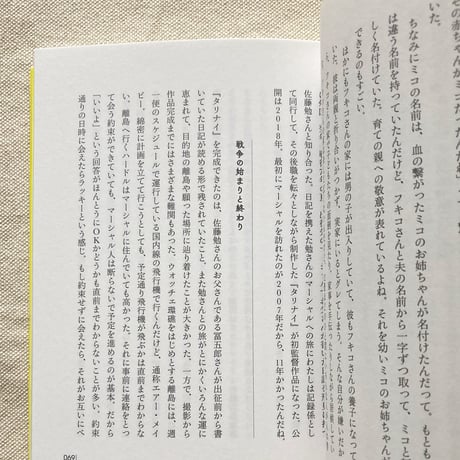 いた。
ちなみにミコの名前は、血の繋がったミコのお姉ちゃんが名付けたんだって。もとも
は違う名前を持っていたんだけど、フキコさんと夫の名前から一字ずつ取って、ミコと
しく名付けていた。育ての親への敬意が表れているよね。それを幼いミコのお姉ちゃん
できるのもすごい。
ほかにもフキコさんの家には男の子が出入りしていて、彼もフキコさんの養子になって
いた。彼は両親と折り合いがつかず、実家にいるとグレてしまう、そんな自分が嫌いだか
佐藤勉さんと知り合った。日記を携えた勉さんのマーシャルへの旅にわたしは記録係とし
て同行して、その後職を転々としながら制作した『タリナイ』が初監督作品になった。公
開は2018年、最初にマーシャルを訪れたのが2007年だから、11年かかったんだね。
戦争の始まりと終わり
『タリナイ』を完成できたのは、佐藤勉さんのお父さんである冨五郎さんが出征前から書
いていた日記が読める形で残されていたこと、また勉さんとの旅がとにかくいろんな運に
恵まれて、目的地の離島や願った場所に辿り着けたことが大きかった。一方で、撮影から
作品完成までにはさまざまな難関もあった。ウォッチェ環礁をはじめとする離島には、週
一便のスケジュールで運行している国内線の飛行機で行くんだけど、通称エアー・メイ
ビー、綿密に計画を立てて行こうとしても、予定通り飛行機が飛ぶかは直前までわからな
い。離島へ行くハードルはマーシャルに住んでいても高かった。それに事前に連絡をとっ
て会う約束ができていても、マーシャル人は断らないで予定を進めるのが基本。だから
「いいよ」という回答がほんとうにOKかどうかも直前までわからないことが多い。約束
通りの日時に会えたらラッキーという感じ。もし約束せずに会えたら、それがお互いにベ
069